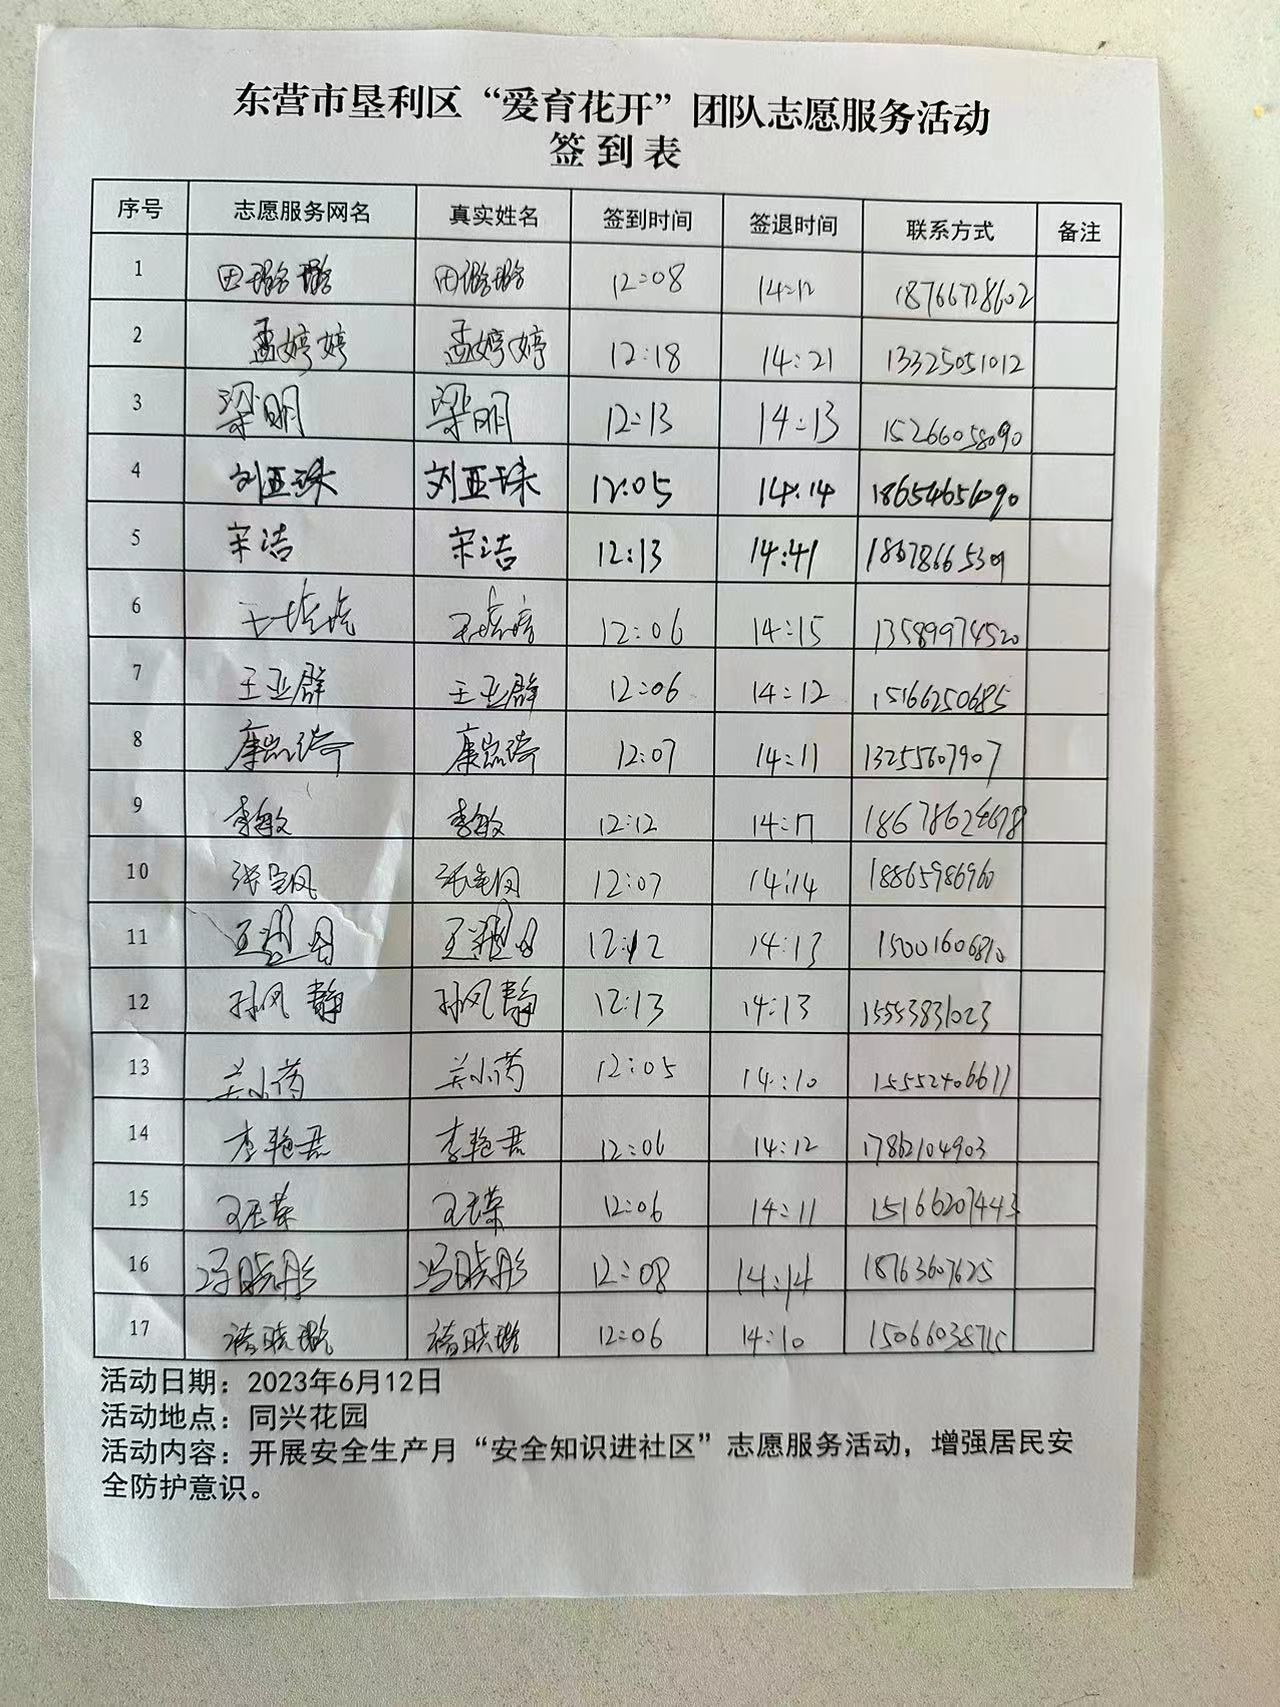 东营市垦利区“爱育花开”团队志愿服务活动
签到表
序号 志愿服务网名 真实姓名 签到时间 签退时间 联系方式 备注
1 田璐璐 田璐璐 12:08 14:12 18766728602
2 孟婷婷 孟婷婷 12:18 14:21 13325051012
3 梁明 梁明 12:13 14:13 15266058090
4 刘亚珠 刘亚珠 12:05 14:14
5 宋洁 宋洁 12:13 14:41
6 12:06 14:15 13589974520
7 王亚群 王亚群 12:06 14:12 15166250685
8 康凯琦 康凯琦 12:07 14:11 13255607907
9 李敏 李敏 12:12 14:17
10 张宝凤 张宝凤 12:07 14:14 18865986960
11 12:12 14:13 15001606810
12 孙风静 孙风静 12:13 14:13 15553831023
13 关小芮 关小芮 12:05 14:10 15552406611
14 李艳君 李艳君 12:06 14:12 17862104903
15 王玉荣 王玉荣 12:06 14:11 15166207443
16 冯晓彤 冯晓彤 12:08 14:14 18763607625
17 褚晓璐 褚晓璐 12:06 14:10 15066038715
活动日期：2023年6月12日
活动地点：同兴花园
活动内容：开展安全生产月“安全知识进社区”志愿服务活动，增强居民安
全防护意识。